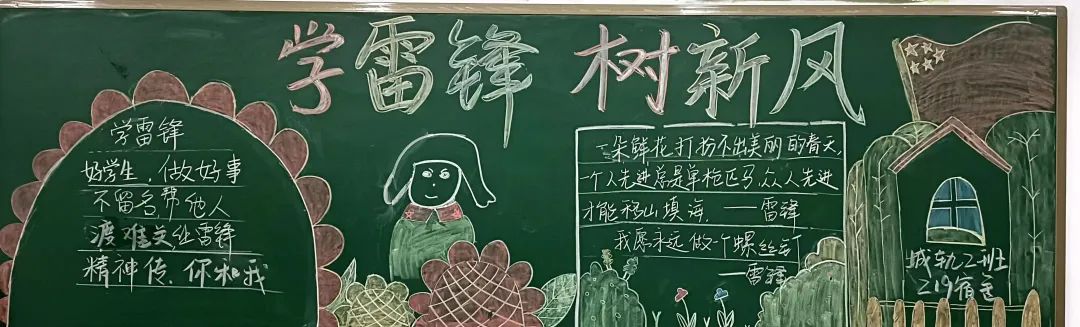 学雷锋 树新风
学雷锋
好学生,做好事
不留名帮他人
渡难关仕雷锋
精神传,你和我
一朵鲜花打扮不出美丽的春天,
一个人先进总是单枪匹马,众人先进
才能移山填海. ——雷锋
我愿永远做一个螺丝钉
——雷锋
城轨2班
219宿舍